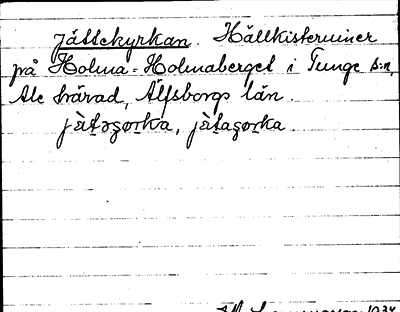 Jättekyrkan. Hällkisteruiner
på Holma-Holmaberget i Tunge s:n,
Ale härad, Älfsborgs län.
jàt̯əgor̯ka, jàt̯agor̯ka
1934